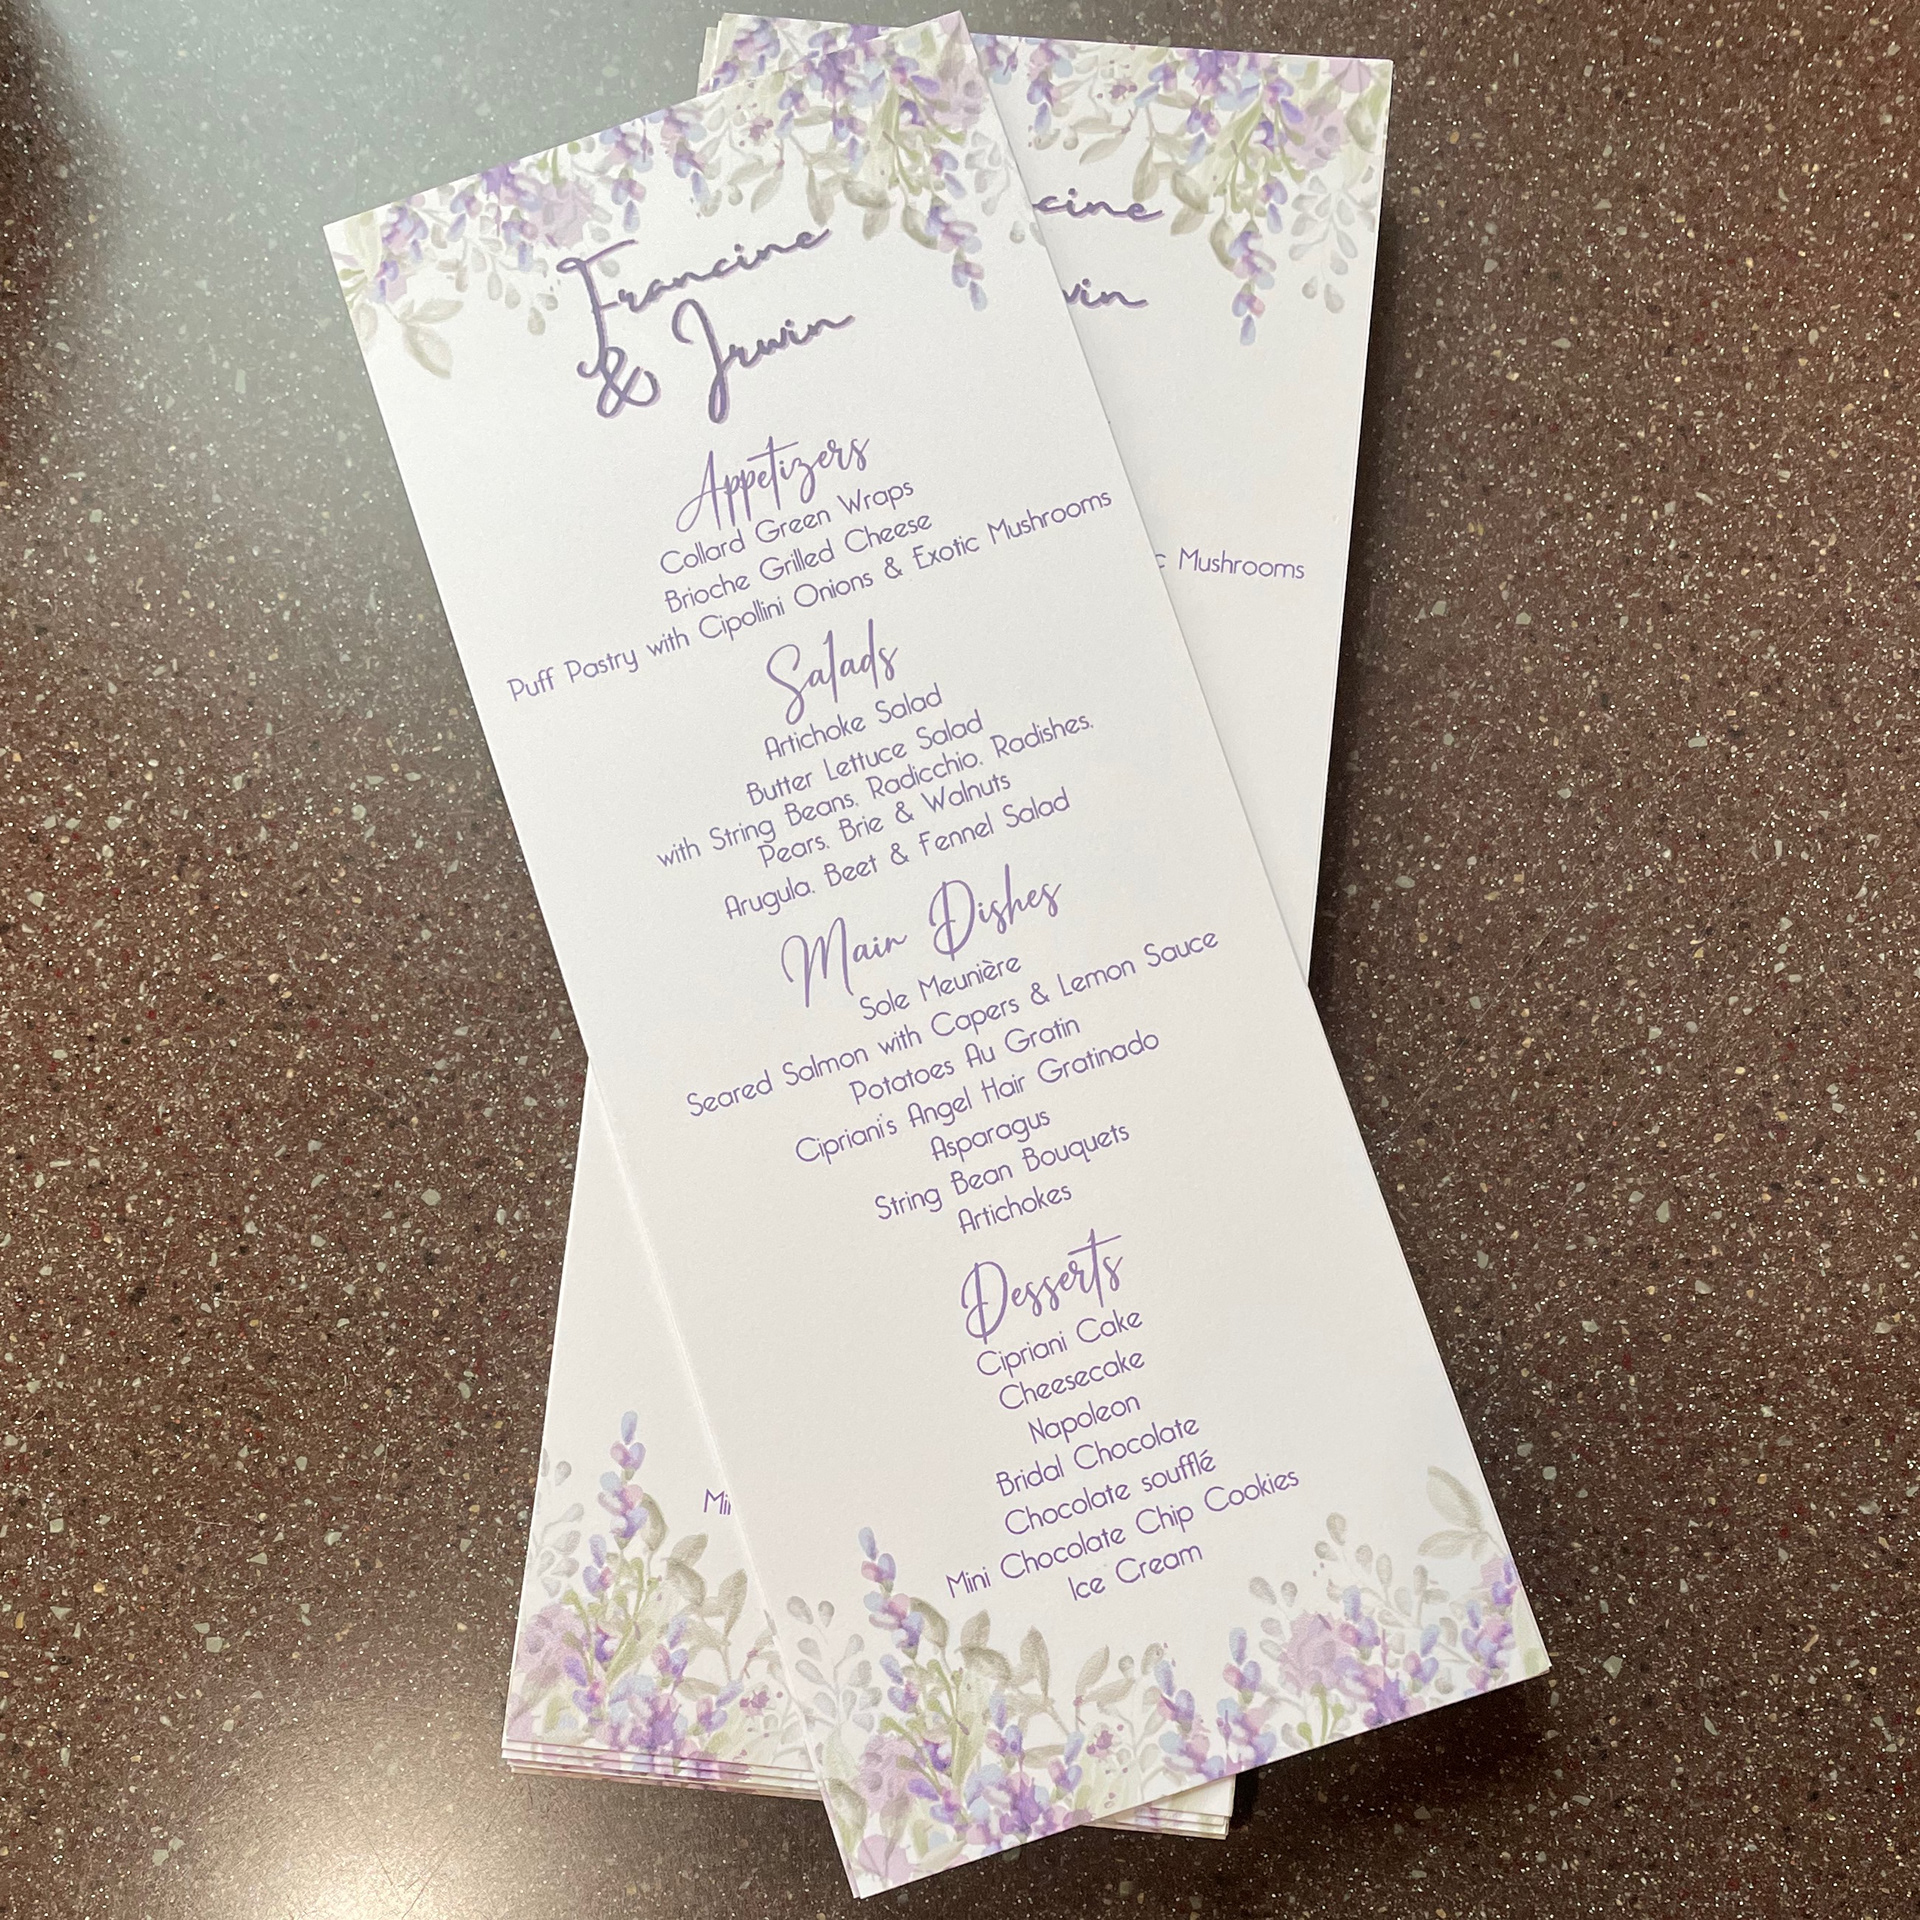 Francine
& Irwin
Appetizers
Collard Green Wraps
Brioche Grilled Cheese
Puff Pastry with Cipollini Onions & Exotic Mushrooms
Salads
Artichoke Salad
Butter Lettuce Salad
with String Beans, Radicchio, Radishes,
Pears, Brie & Walnuts
Arugula, Beet & Fennel Salad
Main Dishes
Sole Meunière
Seared Salmon with Capers & Lemon Sauce
Potatoes Au Gratin
Cipriani's Angel Hair Gratinado
Asparagus
String Bean Bouquets
Artichokes
Desserts
Cipriani Cake
Cheesecake
Napoleon
Bridal Chocolate
Chocolate soufflé
Mini Chocolate Chip Cookies
Ice Cream
cine
win
c Mushrooms
Mi